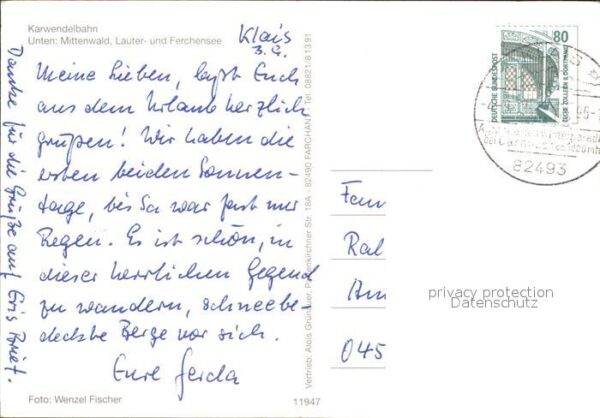 Karwendelbahn
Unten: Mittenwald, Lauter- und Ferchensee
Klais
3.4.
Meine Lieben, laßt Euch
aus dem Urlaub herzlich
grüßen! Wir haben die
ersten beiden Sonnen-
tage, bis Sa war fast nur
Regen. Es ist schön, in
dieser herrlichen Gegend
zu wandern, schneebe-
deckte Berge vor sich.
Eure Gerda
Danke für die Grüße auf Eris Brief.
Foto: Wenzel Fischer
11947
Vertrieb: Alois Grunauer, Partenkirchner Str. 18A - 82490 FARCHANT Tel. 08821/61391
80
DEUTSCHE BUNDESPOST
ZECHE ZOLLERN II DORTMUND
82493
Fam
Ral
Am
045
privacy protection
Datenschutz